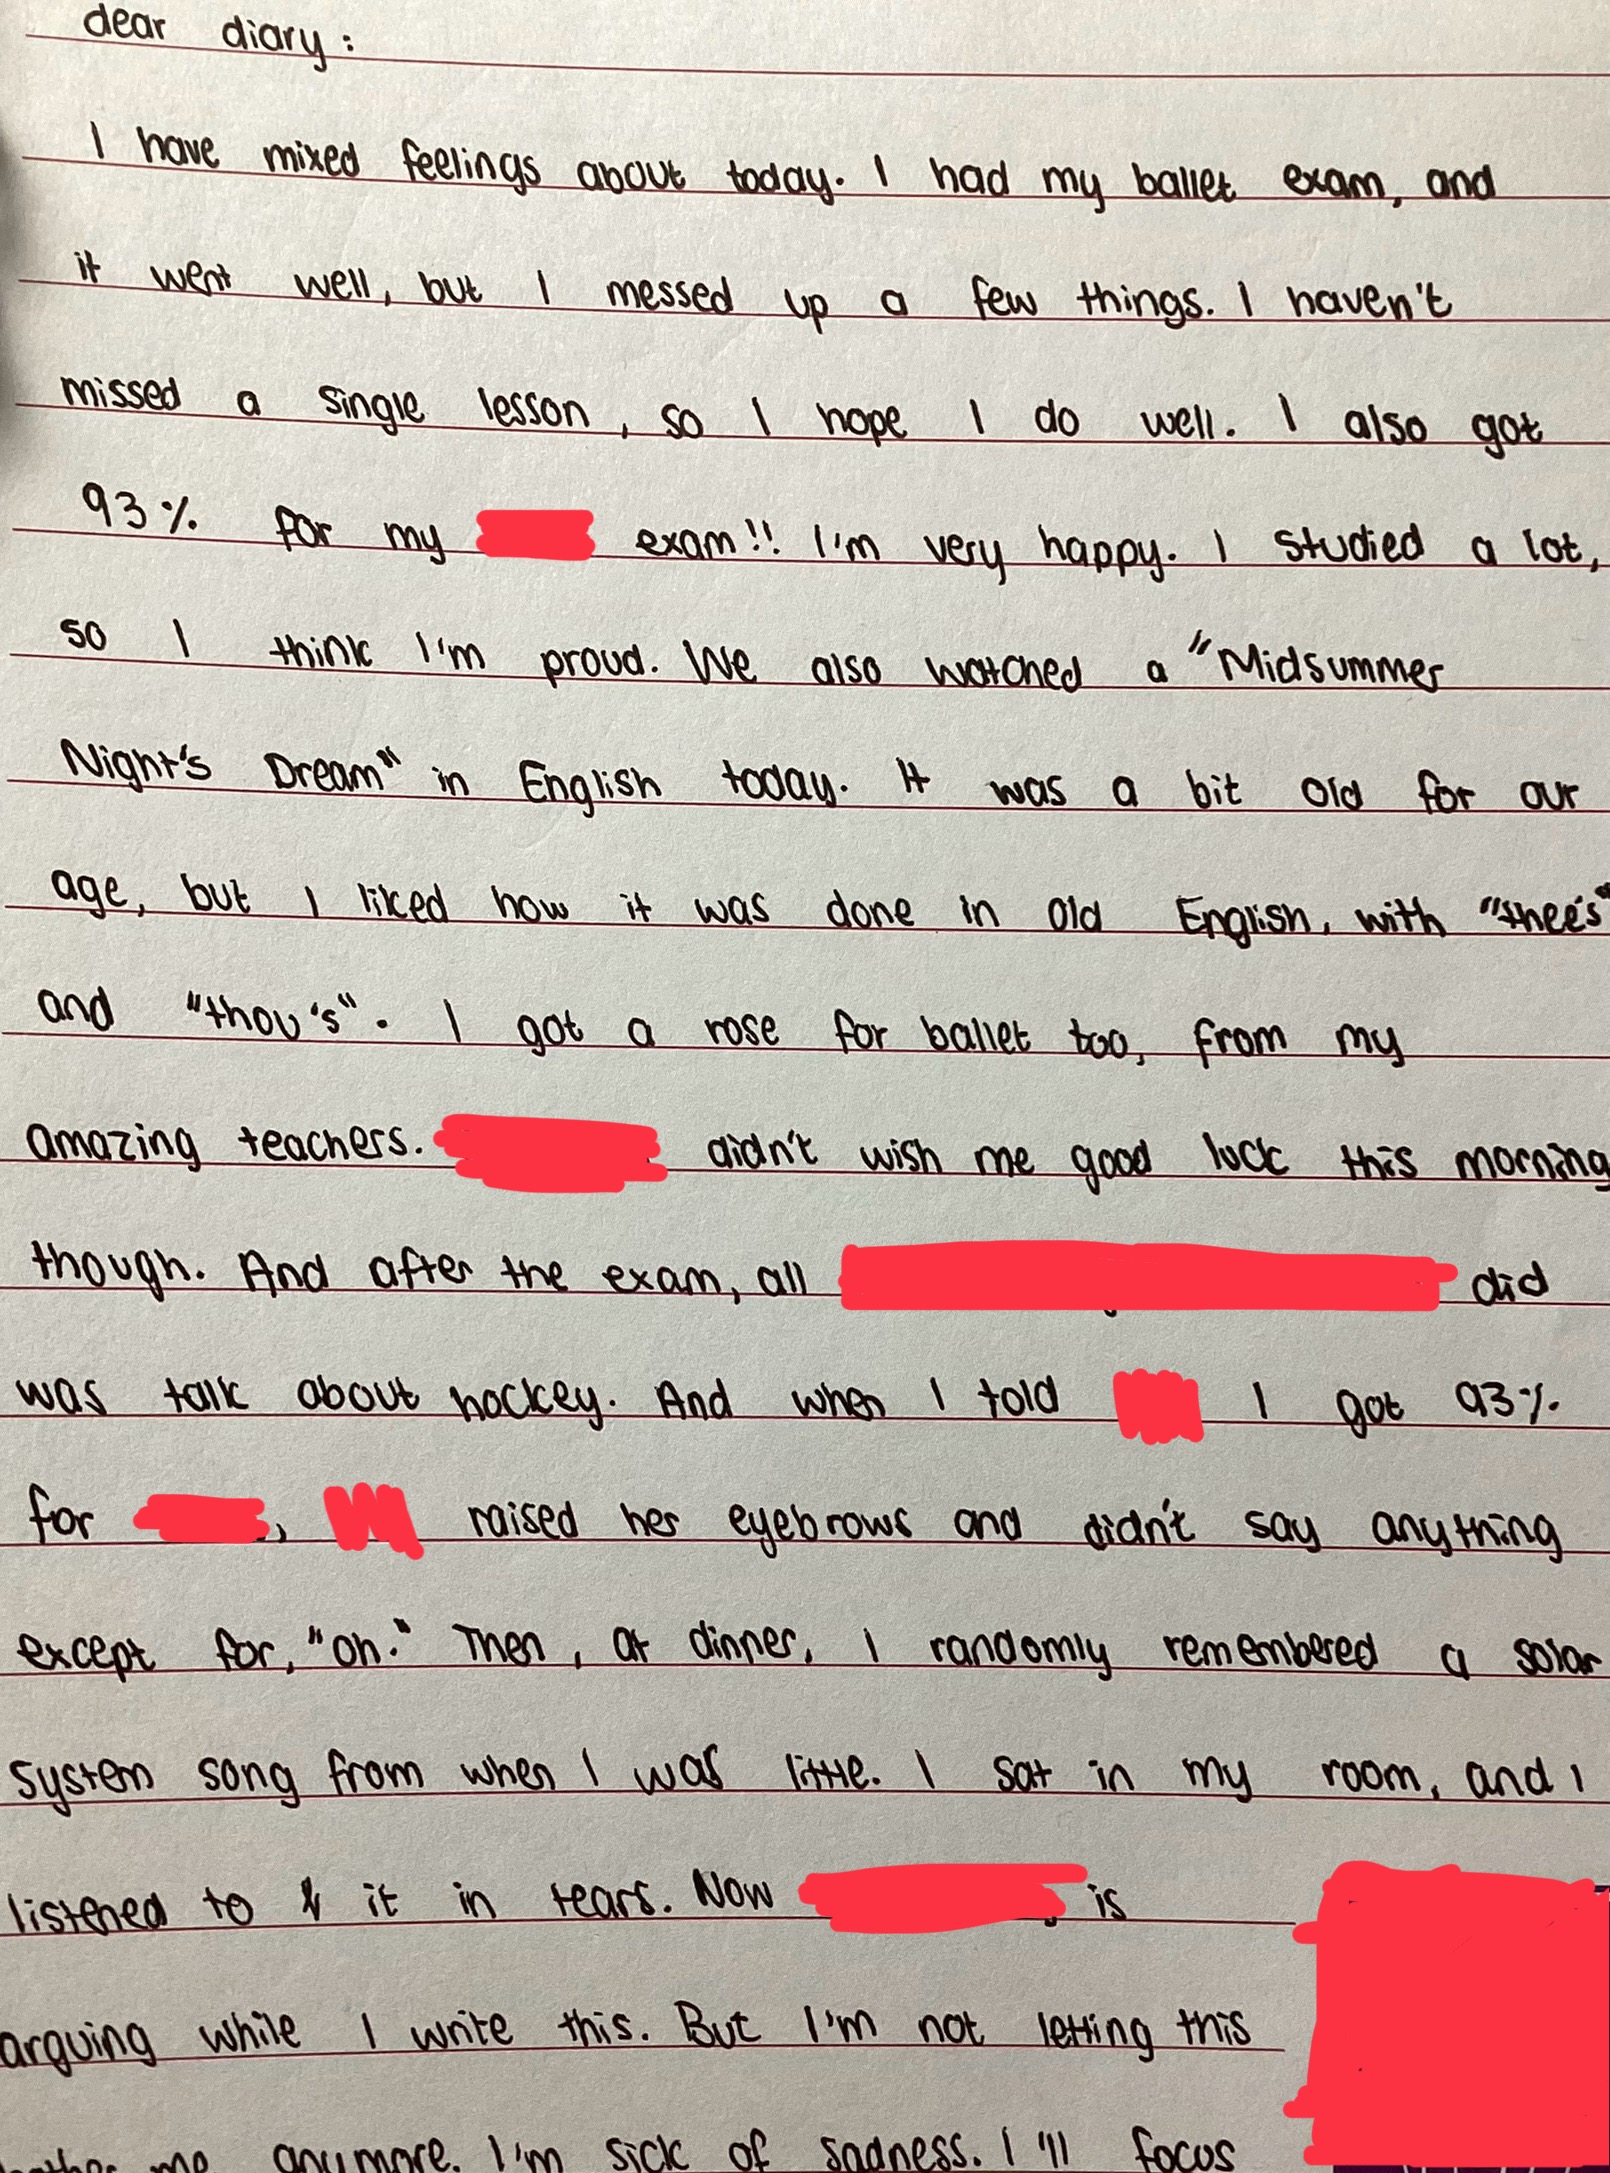 dear diary:
I have mixed feelings about today. I had my ballet exam, and
it went well, but I messed up a few things. I haven't
missed a single lesson, so I hope I do well. I also got
93% for my exam!! I'm very happy. I studied a lot,
so I think I'm proud. We also watched a "Midsummer
Night's Dream" in English today. It was a bit old for our
age, but I liked how it was done in old English, with "thee's"
and "thou's". I got a rose for ballet too, from my
amazing teachers. didn't wish me good luck this morning
though. And after the exam, all did
was talk about hockey. And when I told I got 93%
for , raised her eyebrows and didn't say anything
except for, "oh." Then, at dinner, I randomly remembered a solar
system song from when I was little. I sat in my room, and I
listened to it in tears. Now is
arguing while I write this. But I'm not letting this
me anymore. I'm sick of sadness. I'll focus